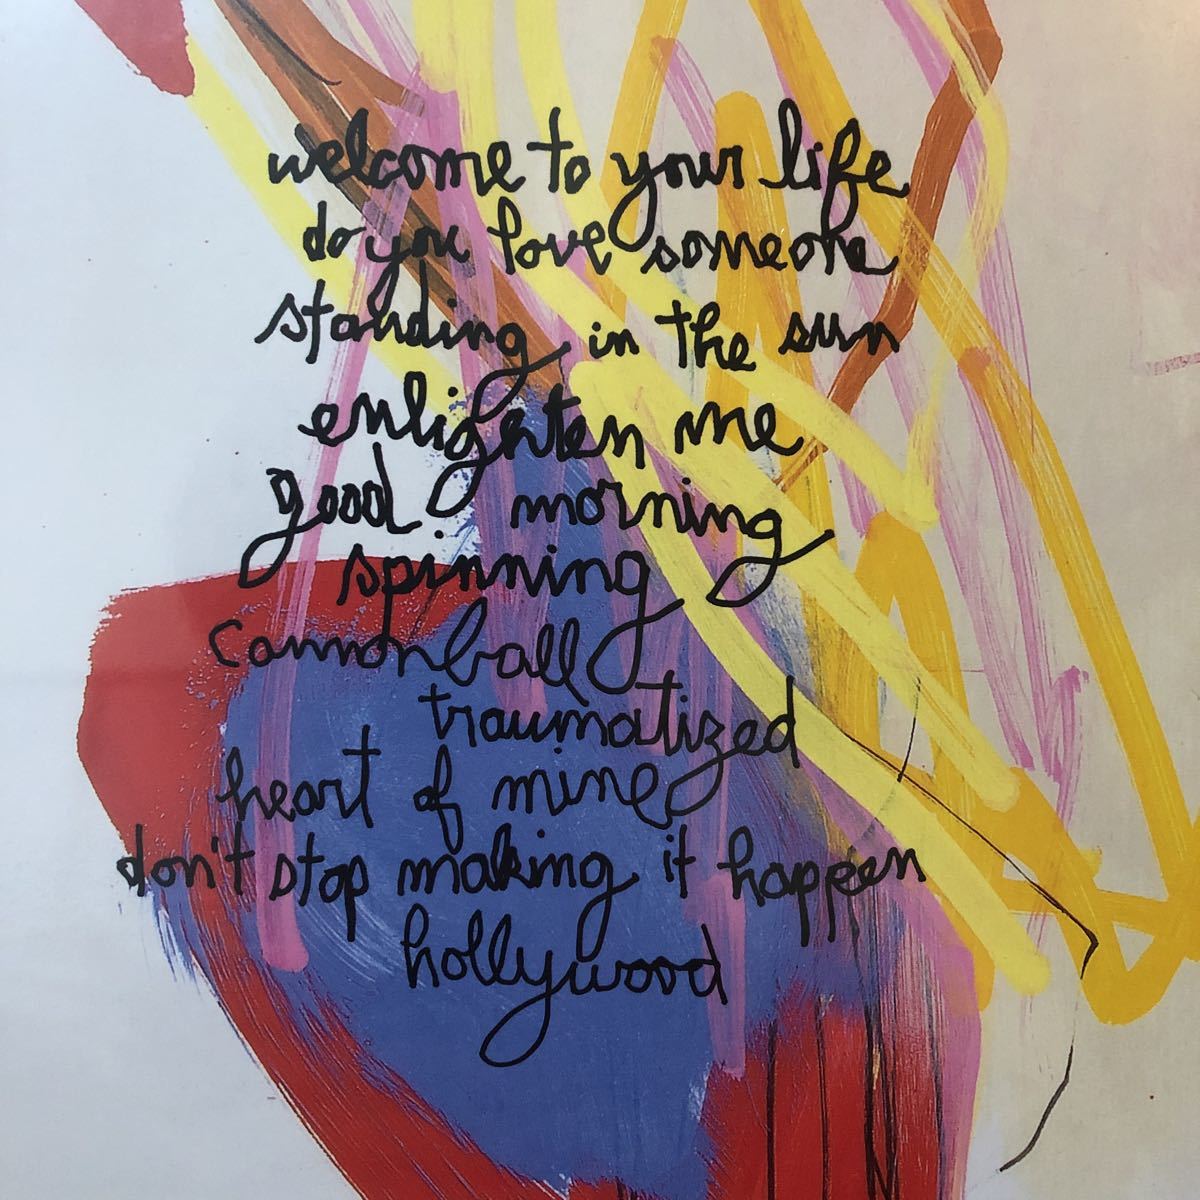 welcome to your life
do you love someone
standing in the sun
enlighten me
good morning
spinning
cannonball
traumatized
heart of mine
don't stop making it happen
hollywood